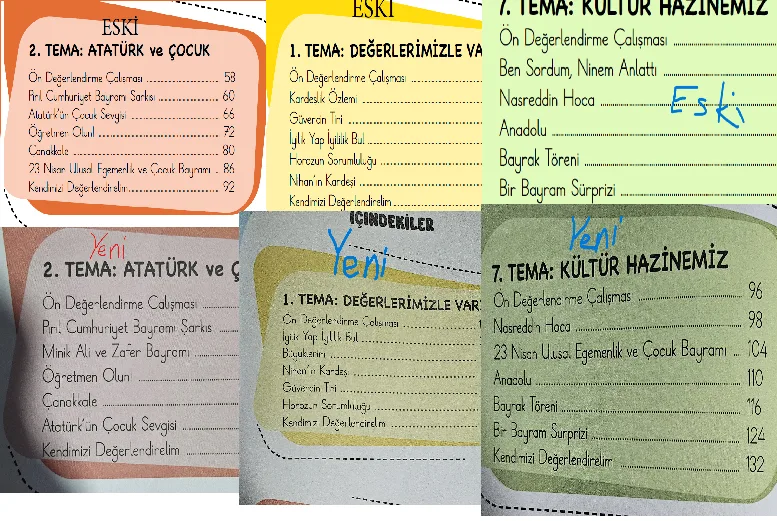 ESKİ
2. TEMA: ATATÜRK ve ÇOCUK
Ön Değerlendirme Çalışması 58
Pırıl Cumhuriyet Bayramı Şarkısı 60
Atatürk'ün Çocuk Sevgisi 66
Öğretmen Olunl 72
Çanakkale 80
23 Nisan Ulusal Egemenlik ve Çocuk Bayramı 86
Kendimizi Değerlendirelim 92
ESKİ
1. TEMA: DEĞERLERİMİZLE VA
Ön Değerlendirme Çalışması
Kardeşlik Özlemi
Güvercin Tiri
İyilik Yap İyilik Bul
Horozun Sorumluluğu
Nihan'ın Kardeşi
Kendimizi Değerlendirelim
7. TEMA: KÜLTÜR HAZİNEMİZ
Ön Değerlendirme Çalışması
Ben Sordum, Ninem Anlattı
Nasreddin Hoca
Eski
Anadolu
Bayrak Töreni
Bir Bayram Sürprizi
Yeni
2. TEMA: ATATÜRK ve Ç
Ön Değerlendirme Çalışması
Pırıl Cumhuriyet Bayramı Şarkıs
Minik Ali ve Zafer Bayramı
Öğretmen Olunl
Çanakkale
Atatürk'ün Çocuk Sevgisi
Kendimizi Değerlendirelim
İÇİNDEKİLER
Yeni
1. TEMA: DEĞERLERİMİZLE VAR
Ön Değerlendirme Çalışması
İyilik Yap İyilik Bul
Büyüklerini
Nihan'ın Kardeşi
Güvercin Tiri
Horozun Sorumluluğu
Kendimizi Değerlendirelim
Yeni
7. TEMA: KÜLTÜR HAZİNEMİZ
Ön Değerlendirme Çalışması 96
Nasreddin Hoca 98
23 Nisan Ulusal Egemenlik ve Çocuk Bayramı 104
Anadolu 110
Bayrak Töreni 116
Bir Bayram Sürprizi 124
Kendimizi Değerlendirelim 132